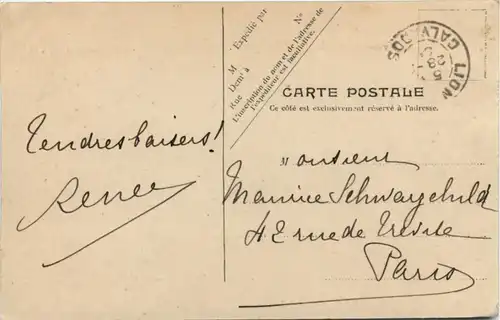 Tendres baisers!
Renée
Expédié par
M
Demt à
Rue
N°
L'inscription du nom et de l'adresse de
l'expéditeur est facultative.
CARTE POSTALE
Ce côté est exclusivement réservé à l'adresse.
LION
CALVADOS
5
28
Monsieur
Maurice Schwarzchild
42 rue de Trévise
Paris